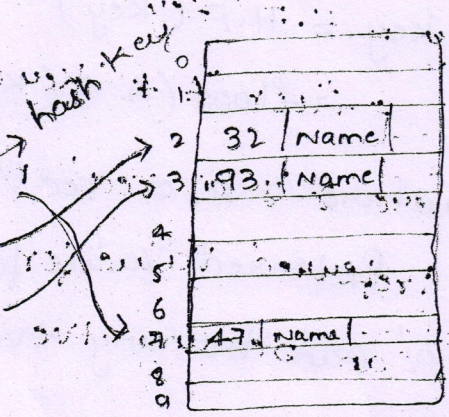 hash key
0
1
2 32 Name
3 93 Name
4
5
6
7 47 Name
8
9